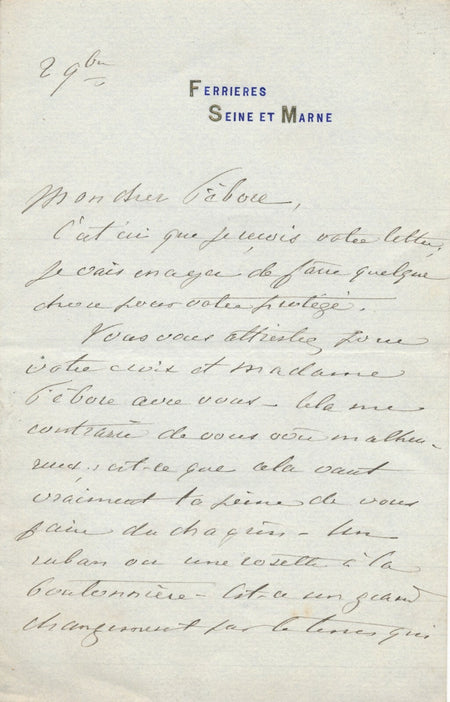 2 9bre
FERRIERES
SEINE ET MARNE
Mon cher Fèbvre,
C'est ici que je reçois votre lettre,
je vais essayer de faire quelque
chose pour votre protégé.
Vous vous attristez, pour
votre croix et Madame
Fèbvre avec vous - Cela me
contrarie de vous voir malheu-
reux, est-ce que cela vaut
vraiment la peine de vous
faire du chagrin - Un
ruban ou une rosette à la
boutonnière - Est-ce un grand
changement par le temps qui